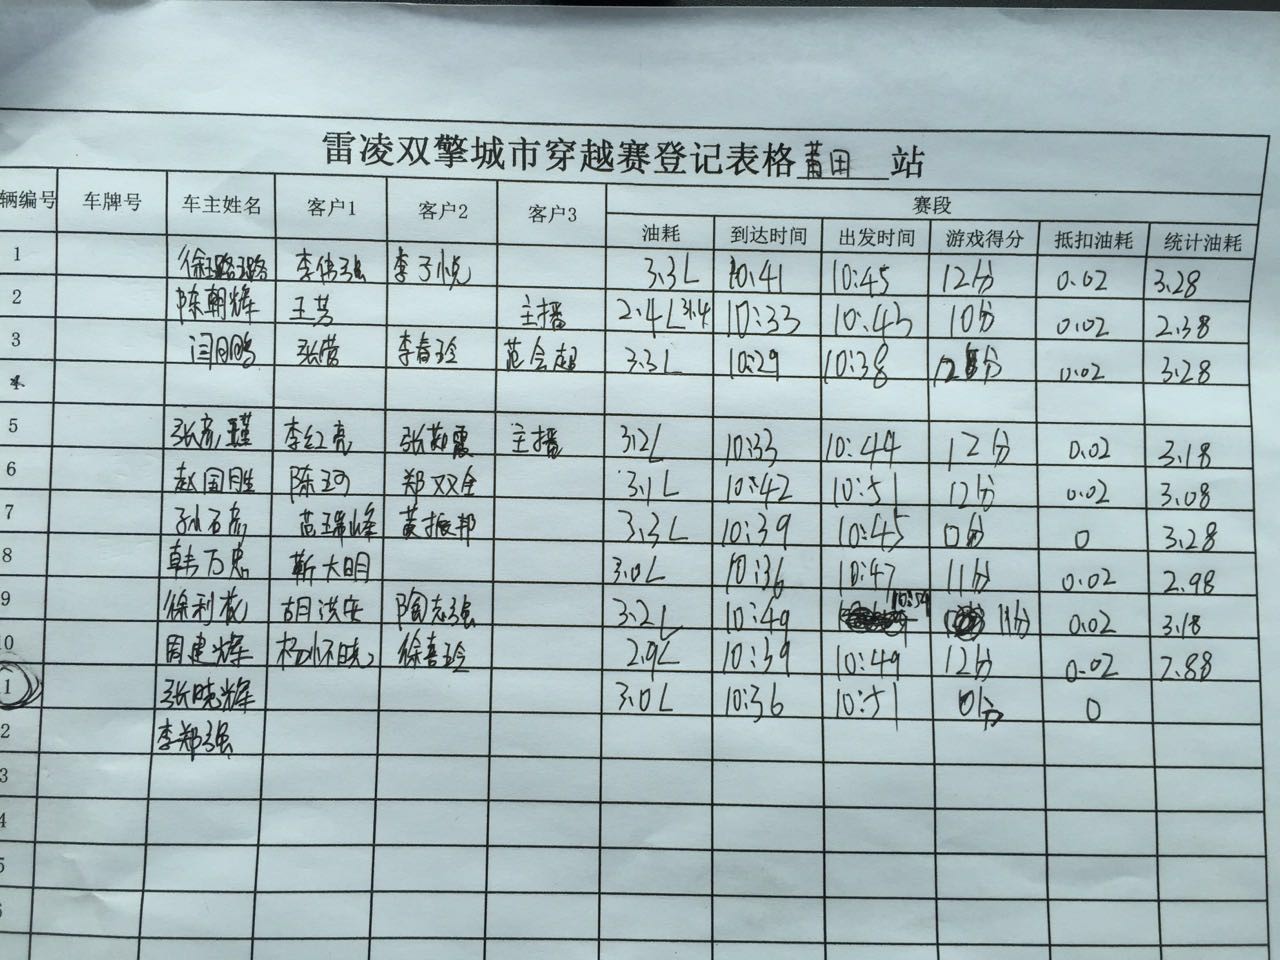 雷凌双擎城市穿越赛登记表格 莆田 站
辆编号 车牌号 车主姓名 客户1 客户2 客户3 赛段
油耗 到达时间 出发时间 游戏得分 抵扣油耗 统计油耗
1 徐璐璐 李伟强 李子悦 3.3L 10:41 10:45 12分 0.02 3.28
2 陈朝辉 王芳 主播 2.4L 3.4 10:33 10:43 10分 0.02 2.38
3 闫鹏 张营 李春玲 范会超 3.3L 10:29 10:38 12分 0.02 3.28
4
5 张彦瑾 李红亮 张茹霞 主播 3.2L 10:33 10:44 12分 0.02 3.18
6 赵国胜 陈珂 郑双全 3.1L 10:42 10:51 12分 0.02 3.08
7 孙石彦 范瑞峰 黄振邦 3.3L 10:39 10:45 0分 0 3.28
8 韩万忠 靳大明 3.0L 10:36 10:47 11分 0.02 2.98
9 徐利花 胡洪安 陶志强 3.2L 10:49 10:59 11分 0.02 3.18
10 周建辉 杨怀晓 徐喜玲 2.9L 10:39 10:49 12分 0.02 2.88
1 张晓辉 3.0L 10:36 10:51 0分 0
2 李郑强
3
4
5
6